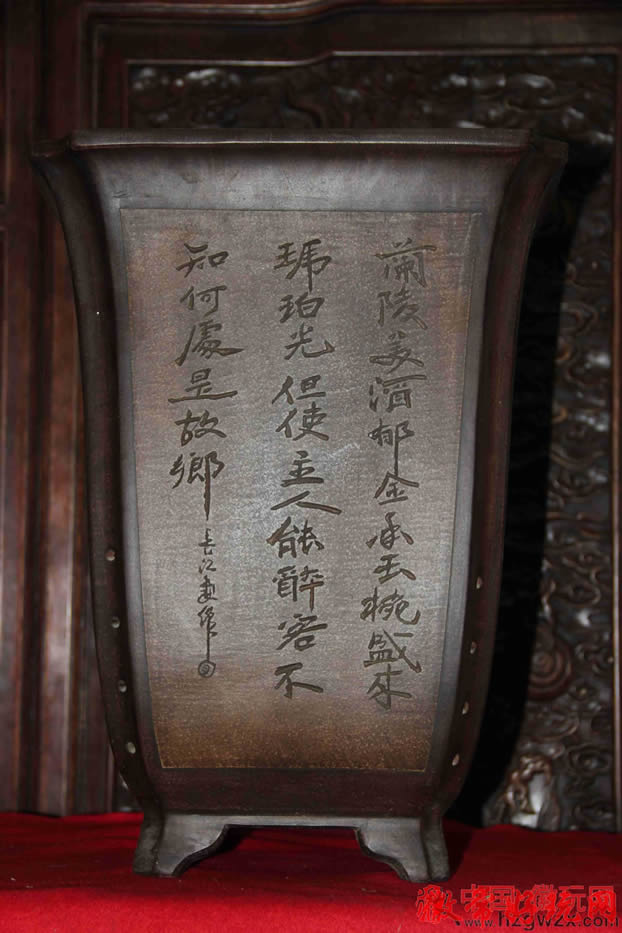 蘭陵美酒郁金香玉椀盛来
琥珀光但使主人能醉客不
知何處是故鄉
長江